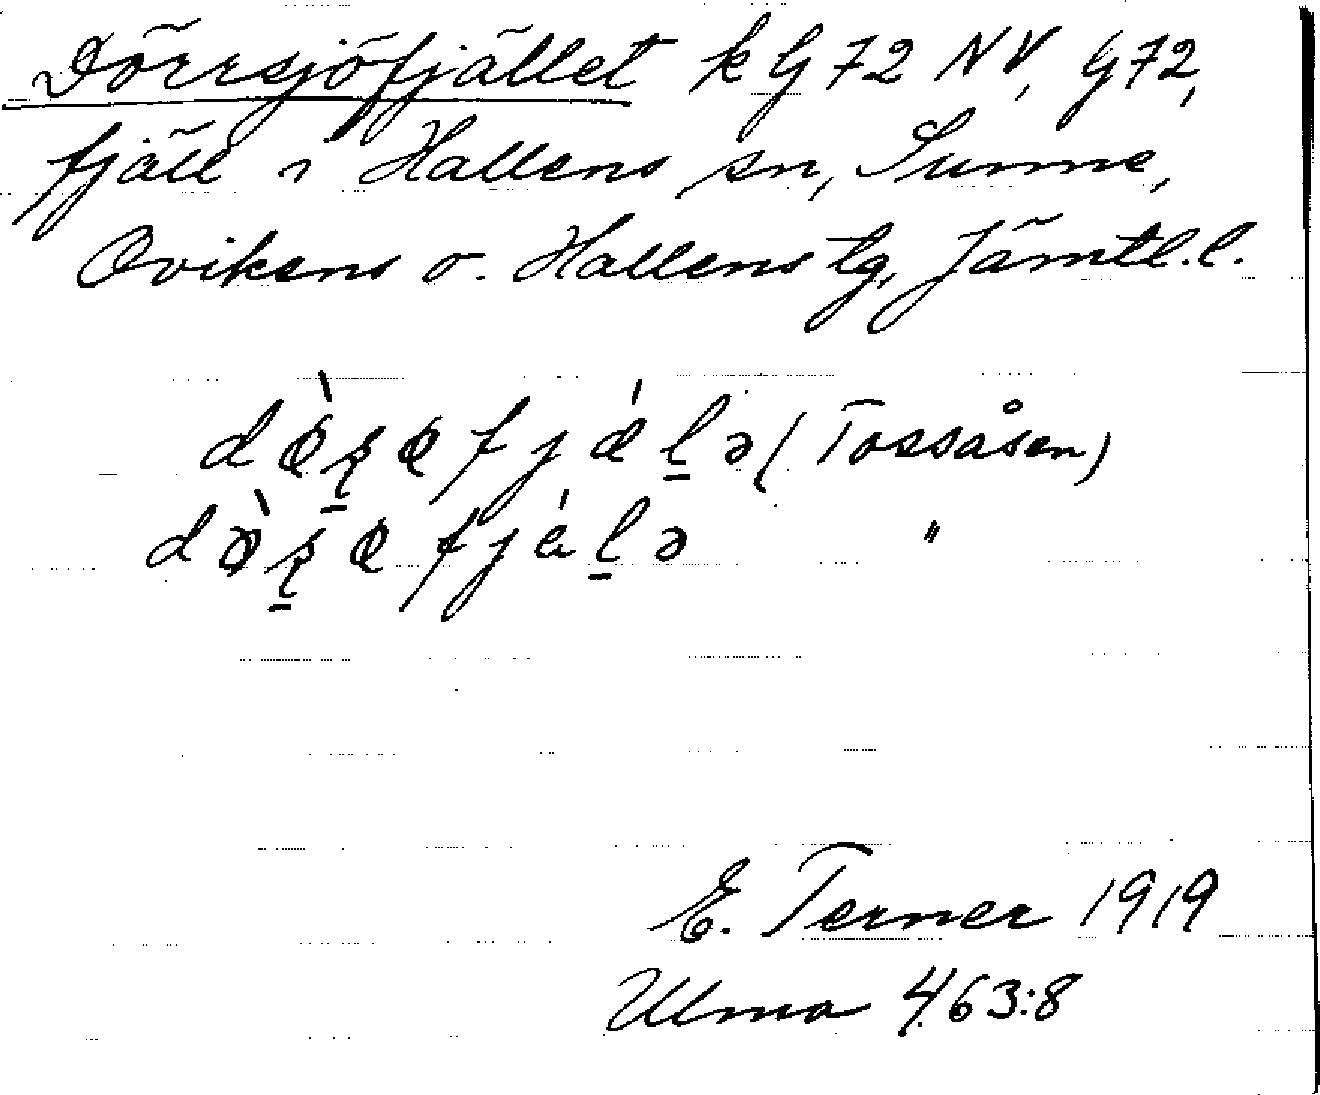 Dörrsjöfjället k G 72 NV, G 72,
fjäll i Hallens sn, Sunne,
Ovikens o. Hallens tg, Jämtl.l.
(Tossåsen)
"
E. Terner 1919
Ulma 463:8